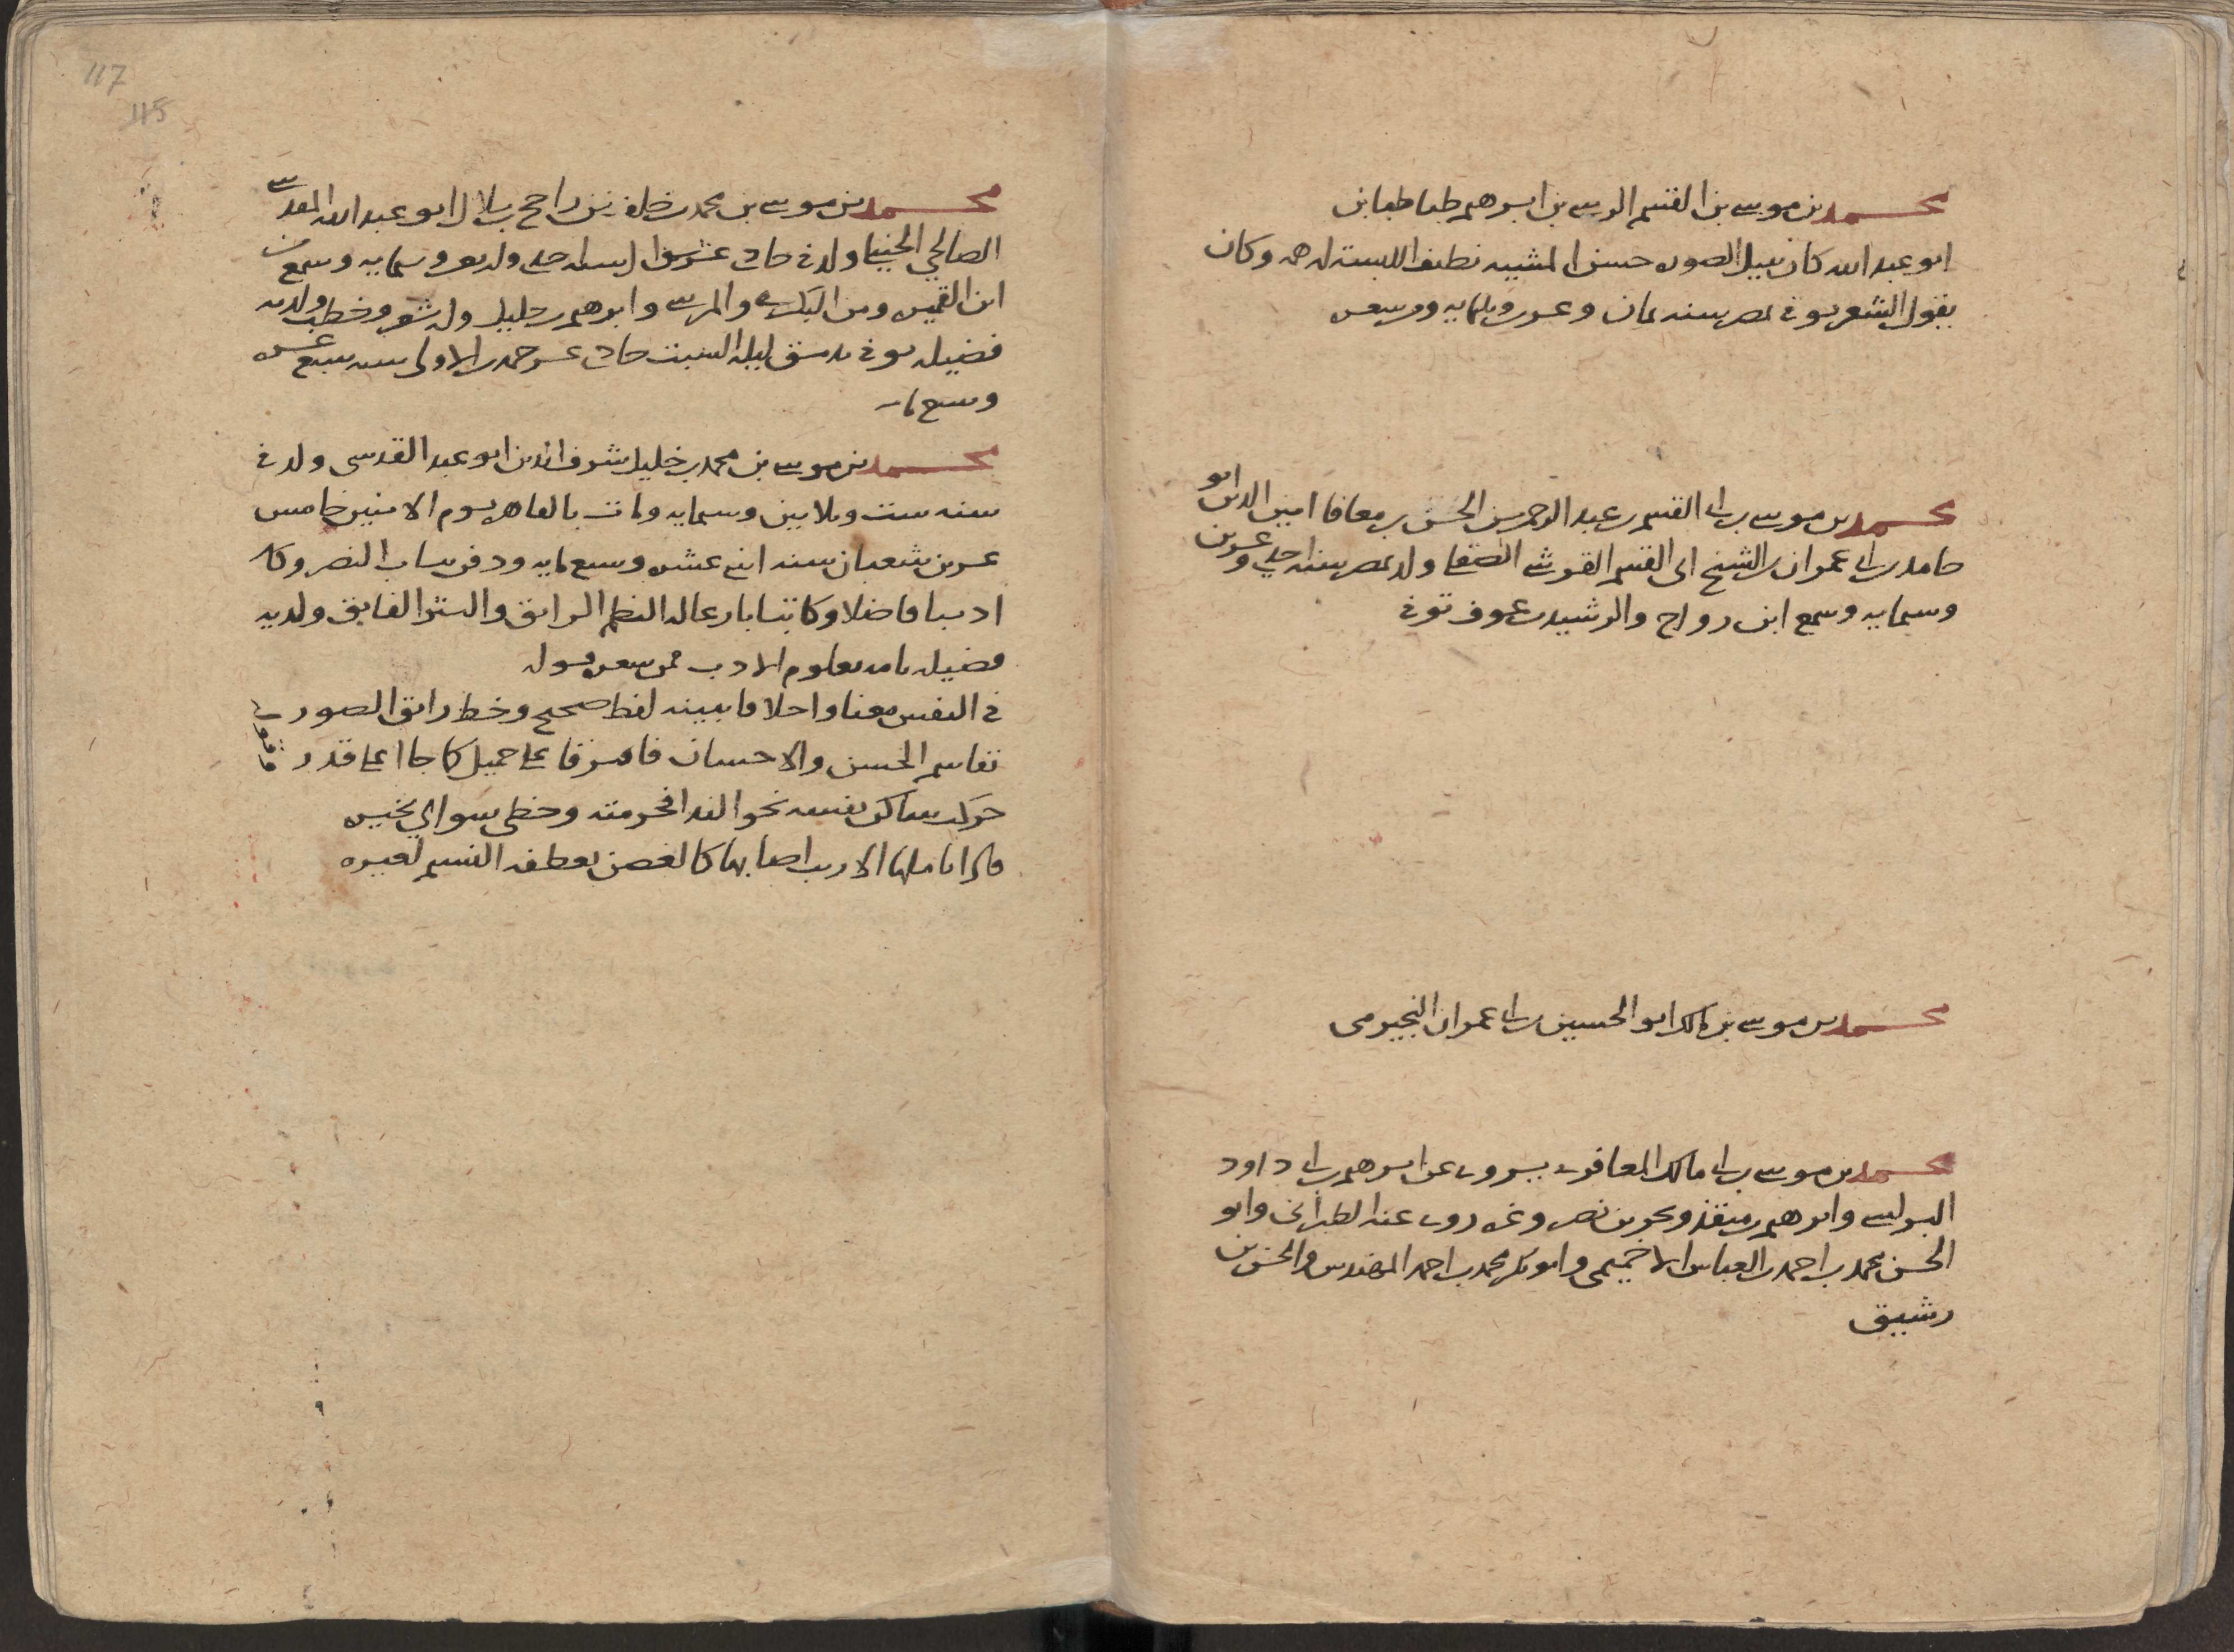 محمد بن موسى بن القسم الرسي بن ابرهيم طباطبا بن
ابو عبد الله كان نبيل الصوره حسن المشيبه نظيف اللبسه وكان
يقول الشعر توفى بمصر سنه ثمان وعشرين وثلثمايه ومن شعره
محمد بن موسى بن ابى القسم بن عبد الرحمن بن الحسن بن معافا امين الدين ابو
حامد بن ابى عمران بن الشيخ ابى القسم القرشى ولد بمصر سنه احدى وعشرين
وستمايه وسمع ابن رواج والرشيد بن عوف توفى
محمد بن موسى بن مالك ابو الحسين بن ابى عمران النجيرمى
محمد بن موسى بن ابى مالك المعافرى يروى عن ابرهيم بن ابى داود
البرلسى وابرهيم بن منقذ وبحر بن نصر وغيره روى عنه الطبرانى وابو
الحسن محمد بن احمد بن العباس الاخميمى وابو بكر محمد بن احمد المهندس والحسن بن
رشيق
117
115
محمد بن موسى بن محمد بن خلف بن راجح بن بلال ابو عبد الله المقدسى
الصالحي الحنبلي ولد في حادى عشر شوال سنه احدى واربعين وستمايه وسمع من
ابن القميره ومن البكرى والمرسى وابرهيم بن خليل وله شعر وخطب ولديه
فضيله توفى بدمشق ليله السبت حادى عشر جمدى الاولى سنه سبع عشره
وسبع مايه
محمد بن موسى بن محمد بن خليل شرف الدين ابو عبد القدسى ولد في
سنه ست وثلاثين وستمايه ومات بالقاهره يوم الاثنين خامس
عشرين شعبان سنه اثنى عشره وسبع مايه ودفن بباب النصر وكان
اديبا فاضلا وكاتبا بارعا له النظم الرائق والنثر الفايق ولديه
فضيله تامه بعلوم الادب فمن شعره قوله
في النفس معنا واحلا ما يبينه لفظ صحيح وخط رائق الصور
تقاسم الحسن والاحسان فافترقا على جميل كما جاا على قدر
نحو الندا
كالغصن يعطفه النسيم لغيره